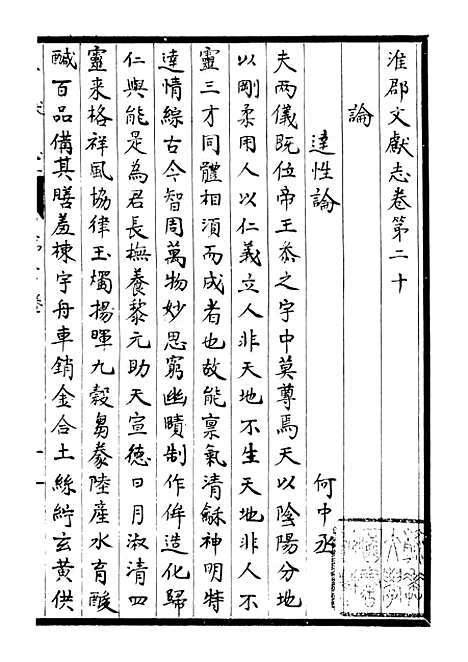 淮郡文獻志卷第二十
論
達性論
何中丞
夫兩儀既位帝王叅之宇中莫尊焉天以陰陽分地
以剛柔用人以仁義立人非天地不生天地非人不
靈三才同體相須而成者也故能稟氣清龢神明特
達情綜古今智周萬物妙思窮幽賾制作侔造化歸
仁與能是為君長撫養黎元助天宣德日月淑清四
靈来格祥風協律玉燭揚暉九穀芻豢陸產水育酸
醎百品備其膳羞棟宇舟車銷金合土絲紵玄黄供